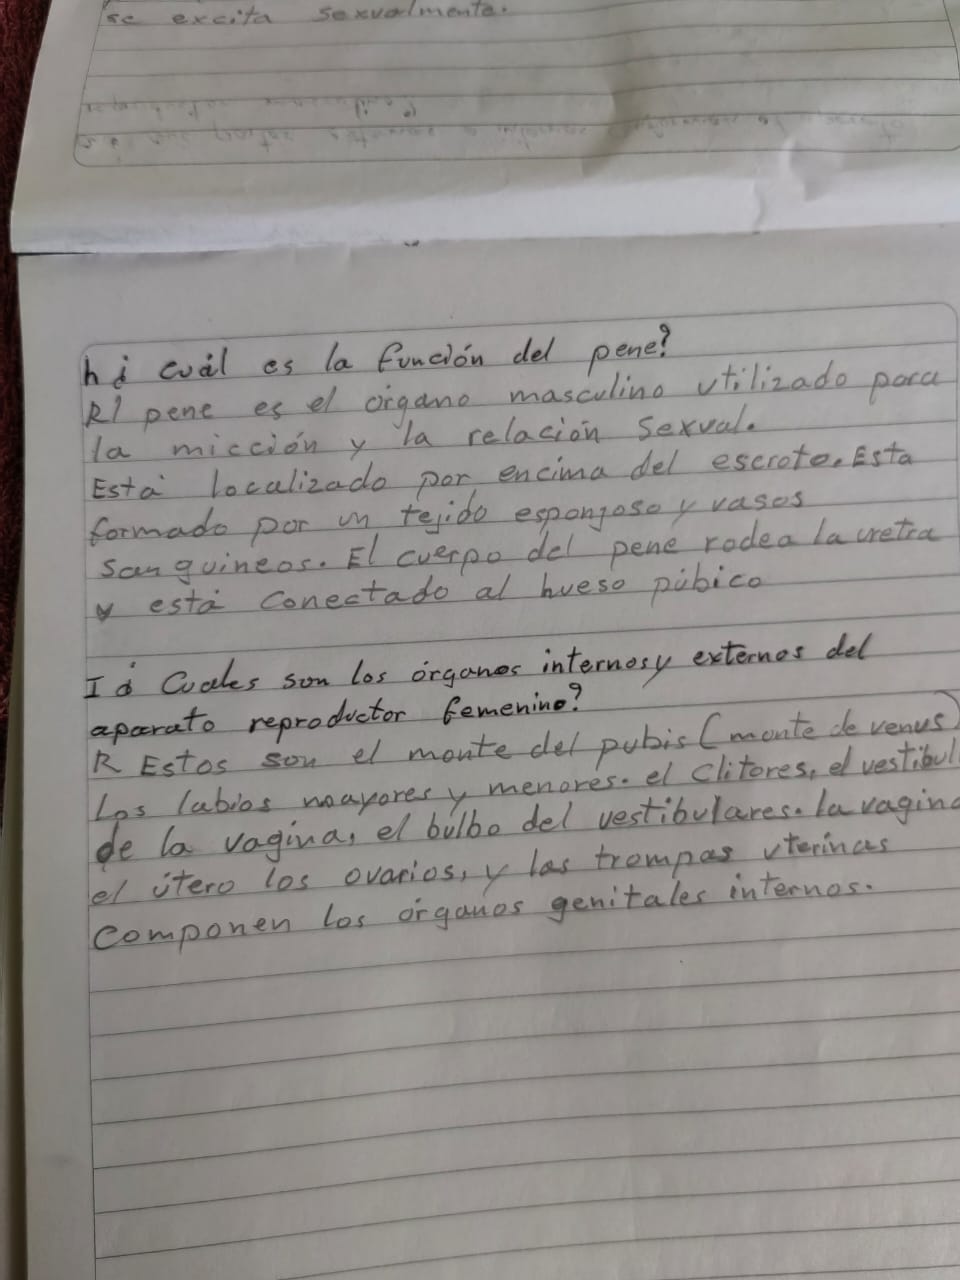 se excita sexualmente.
h ¿ cuál es la función del pene?
R/ pene es el órgano masculino utilizado para
la micción y la relación Sexual.
Está localizado por encima del escroto. Esta
formado por un tejido esponjoso y vasos
sanguineos. El cuerpo del pene rodea la uretra
y está conectado al hueso púbico
I ¿ Cuales son los órganos internos y externos del
aparato reproductor femenino?
R Estos son el monte del pubis (monte de venus)
Los labios mayores y menores. el Clitores, el vestibul
de la vagina, el bulbo del vestibulares. la vagina
el útero los ovarios, y las trompas uterinas
componen los órganos genitales internos.